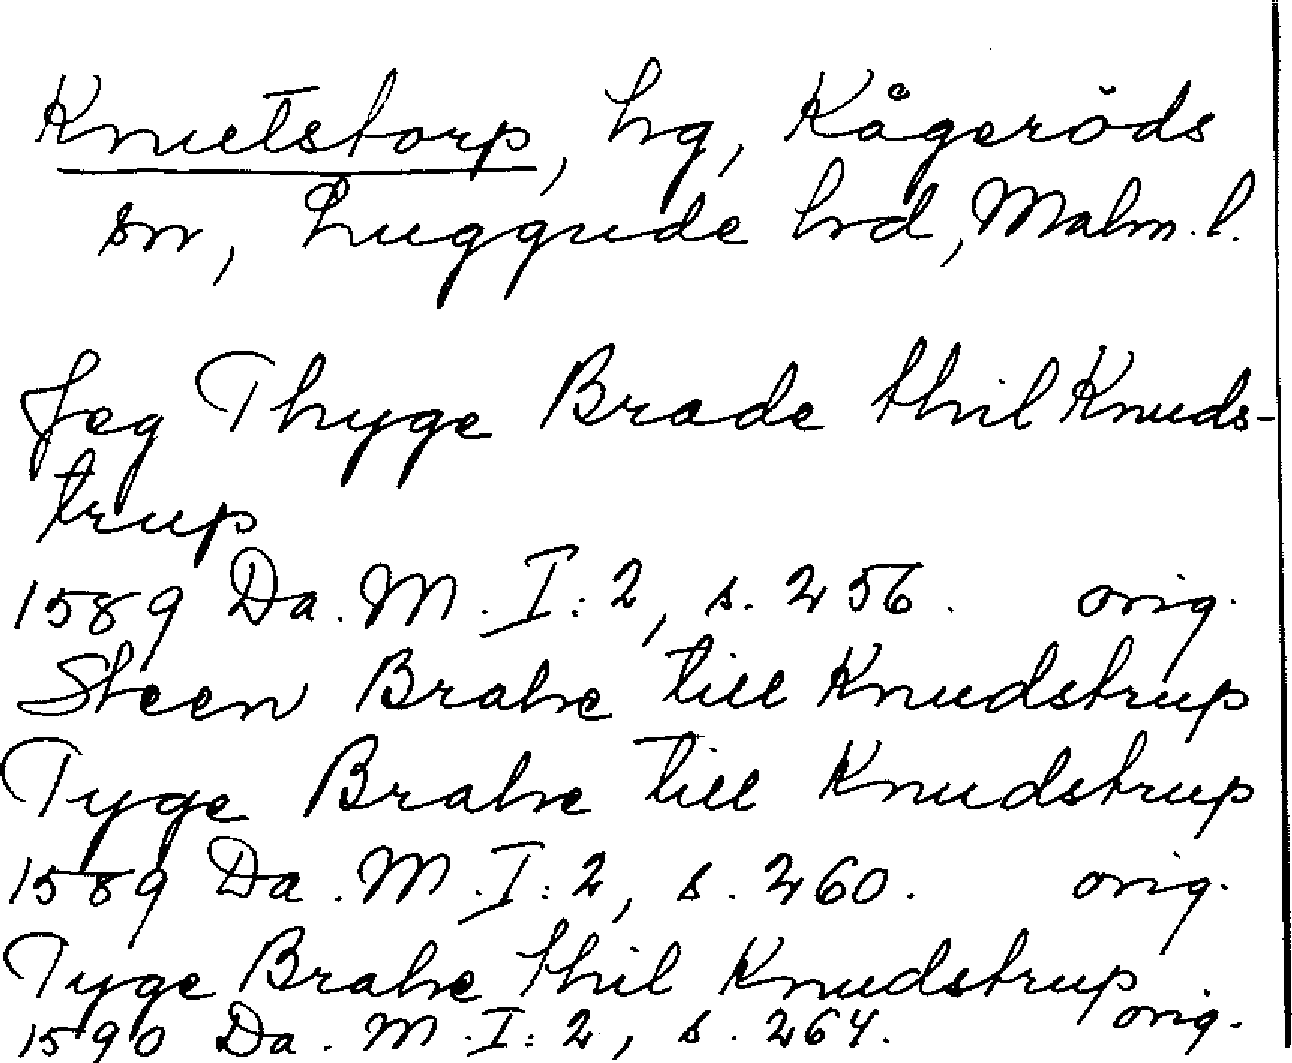 Knutstorp, hg, Kågeröds
sn, Luggude hd, Malm. l.
Jeg Thyge Brade thil Knuds-
trup
1589 Da. M. I: 2, s. 256. orig.
Steen Brahe till Knudstrup
Tyge Brahe till Knudstrup
1589 Da. M. I: 2, s. 260. orig.
Tyge Brahe thil Knudstrup
1590 Da. M. I: 2, s. 264. orig.